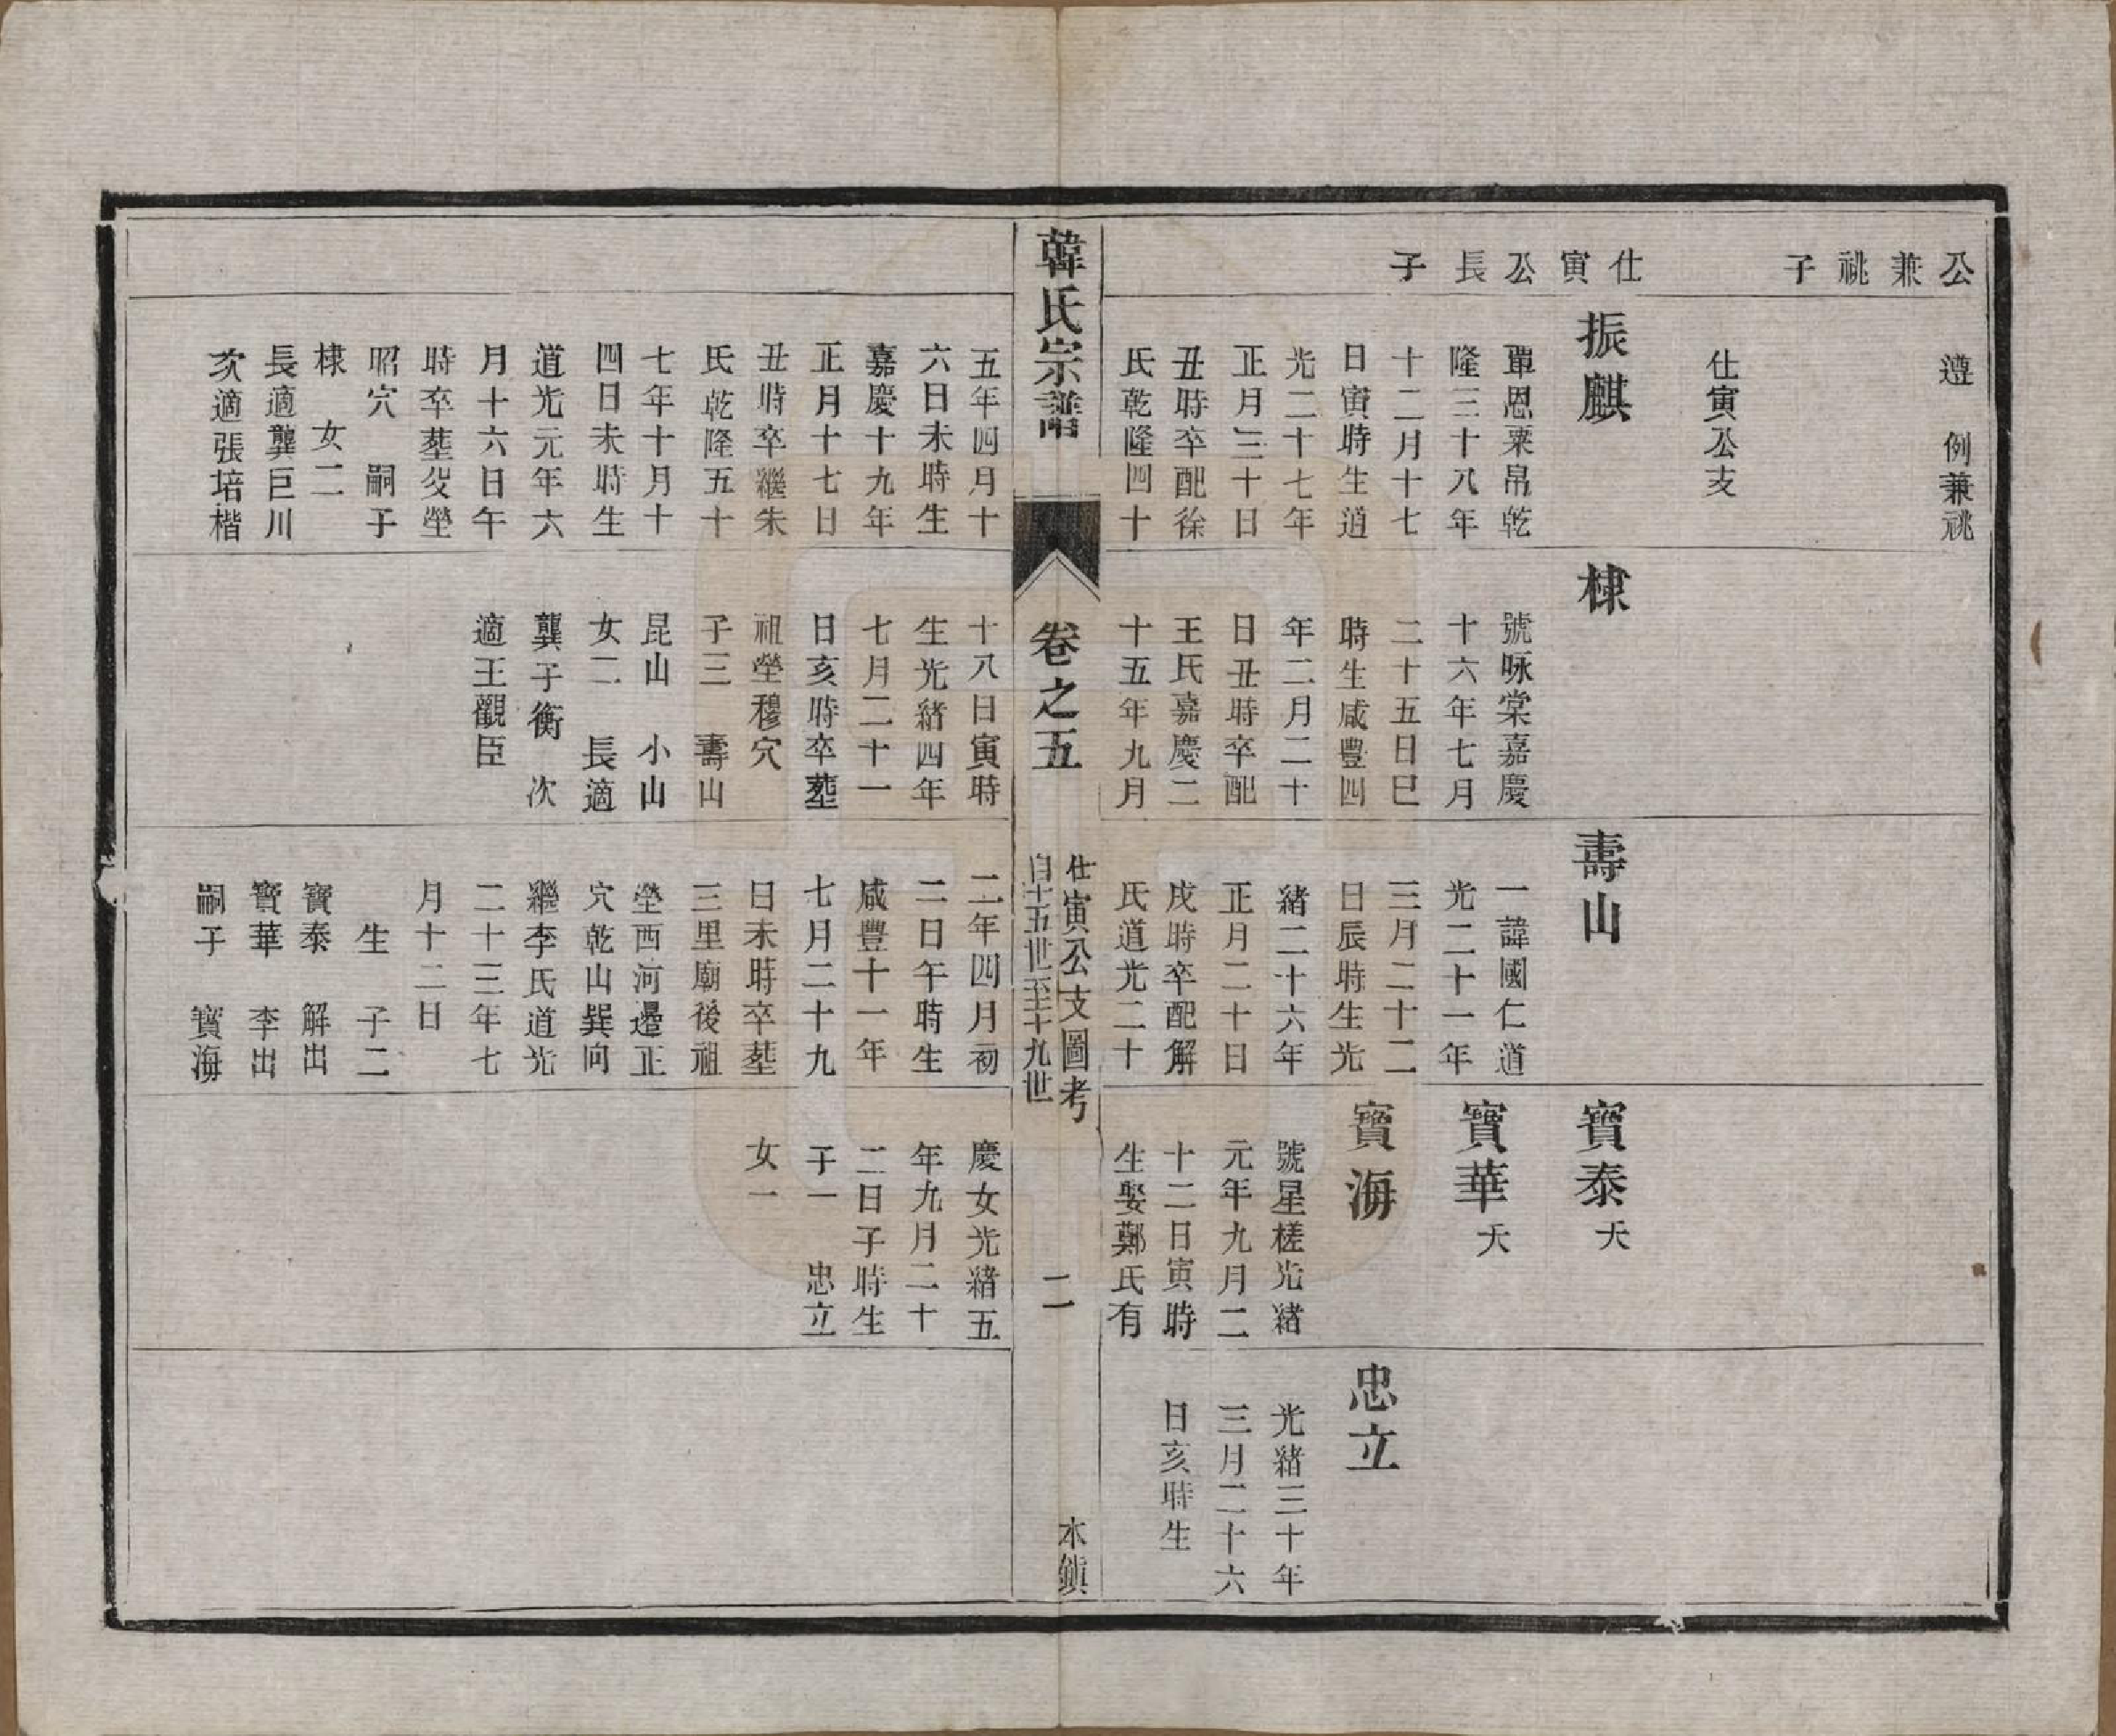 公兼祧子
遵　例兼祧
仕寅公支
仕寅公長子
振麒
覃恩粟帛乾
隆三十八年
十二月十七
日寅時生道
光二十七年
正月三十日
丑時卒配徐
氏乾隆四十
棣
號咏棠嘉慶
十六年七月
二十五日巳
時生咸豐四
年二月二十
日丑時卒配
王氏嘉慶二
十五年九月
壽山
一諱國仁道
光二十一年
三月二十二
日辰時生光
緒二十六年
正月二十日
戌時卒配解
氏道光二十
寶泰 夭
寶華 夭
寶海
號星槎光緒
元年九月二
十二日寅時
生娶鄭氏有
忠立
光緒三十年
三月二十六
日亥時生
韓氏宗譜
卷之五
仕寅公支圖考
自十五世至十九世
二
木鎮
五年四月十
六日未時生
嘉慶十九年
正月十七日
丑時卒繼朱
氏乾隆五十
七年十月十
四日未時生
道光元年六
月十六日午
時卒塟父塋
昭穴　嗣子
棣　女二
長適龔巨川
次適張培楷
十八日寅時
生光緒四年
七月二十一
日亥時卒塟
祖塋穆穴
子三　壽山
昆山　小山
女二　長適
龔子衡　次
適王觀臣
二年四月初
二日午時生
咸豐十一年
七月二十九
日未時卒塟
三里廟後祖
塋西河邊正
穴乾山巽向
繼李氏道光
二十三年七
月十二日
生　子二
寶泰　解出
寶華　李出
嗣子　寶海
慶女光緒五
年九月二十
二日子時生
子一　忠立
女一